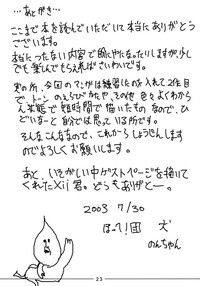 …あとがき…
ここまで本を読んでいただいて本当にありがとう
ございます。
本当につたない内容で恥にやになったりしますが、少し
でも楽しんでもらえればさいわいです。
実の所、今回のマンガは練習したのを入れて2作目
で、トーンのえらびかたや、その他 色々よくわから
ん状態で短時間で描いたものなので、ひ
どいなーと自分では思っている所です。
そんなこんななので、これからしょうじんします
のでよろしくお願いします。
あと、いそがしい中ゲストページを描いて
くれたXii君。どうもありがとー。
2003 7/30
ほっへ!団 犬
のんちゃん
23